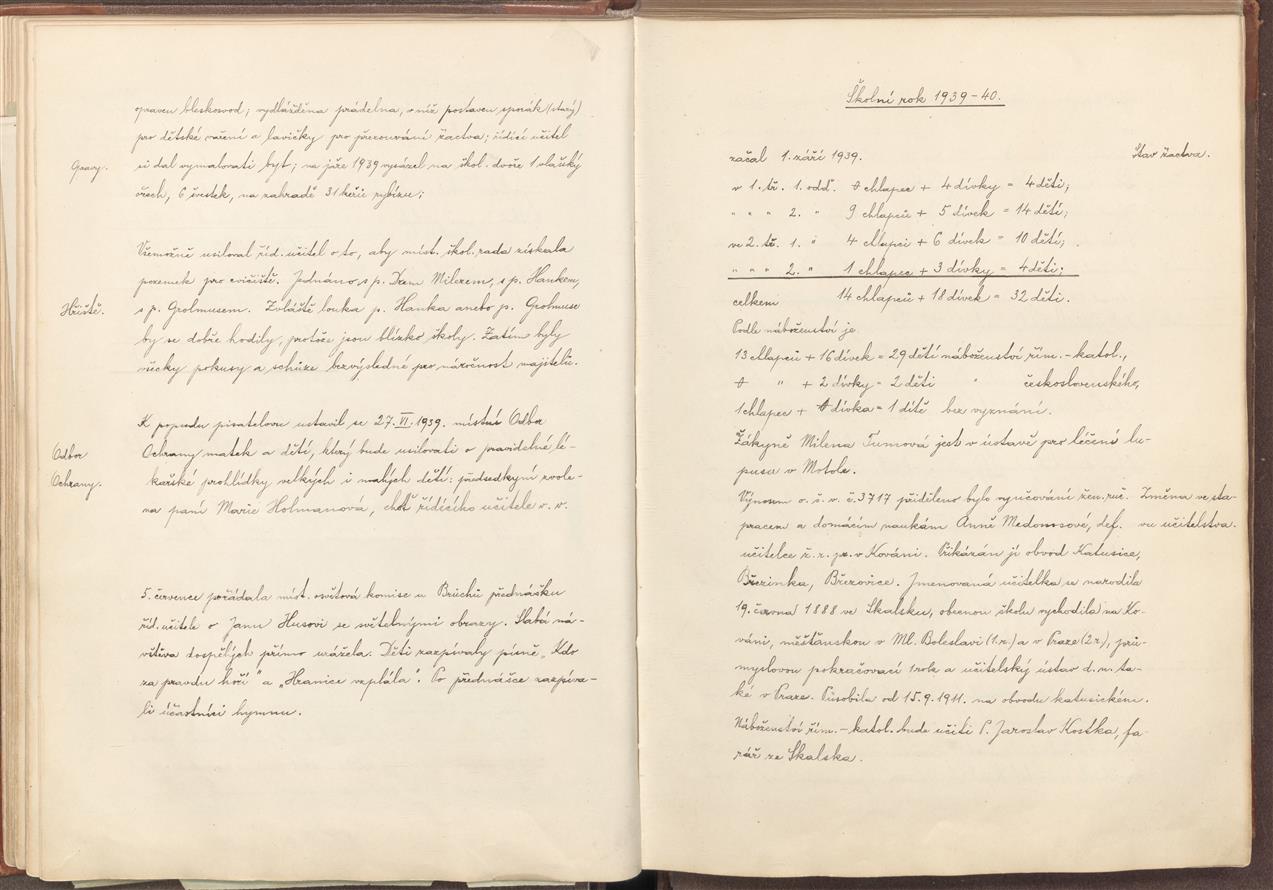 opraven bleskosvod; vydlážděna prádelna, v níž postaven sporák (starý)
pro dětské vaření a lavičky pro přezouvání žactva; řídící učitel
Opravy.
si dal vymalovati byt; na jaře 1939 vysázel na škol. dvoře 1 vlašský
ořech, 6 švestek, na zahradě 31 keřů rybízu;
Všemožně usiloval říd. učitel o to, aby míst. škol. rada získala
pozemek pro cvičiště. Jednáno s p. Dam Milerem, s p. Hankem,
Hřiště.
s p. Grolmusem. Zvláště louka p. Hanka anebo p. Grolmuse
by se dobře hodily, protože jsou blízko školy. Zatím byly
všecky pokusy a schůze bezvýsledné pro náročnost majitelů.
K popudu pisatelovu ustavil se 27. VI. 1939. místní Odbor
Odbor
Ochrany.
Ochrany matek a dětí, který bude usilovati o pravidelné lé-
kařské prohlídky velkých i malých dětí: předsedkyní zvole-
na paní Marie Holmanová, choť řídícího učitele v. v.
5. července pořádala míst. osvětová komise u Bruchů přednášku
říd. učitele o Janu Husovi se světelnými obrazy. Slabá ná-
vštěva dospělých přímo urážela. Děti zazpívaly písně „Kdo
za pravdu hoří" a „Hranice vzplála". Po přednášce zazpíva-
li účastníci hymnu.
Školní rok 1939-40.
začal 1. září 1939.
Stav žactva.
v 1. tř. 1. odd. 0 chlapec + 4 dívky = 4 děti;
" " " 2. " 9 chlapců + 5 dívek = 14 dětí;
ve 2. tř. 1. " 4 chlapci + 6 dívek = 10 dětí;
" " " 2. " 1 chlapec + 3 dívky = 4 děti;
celkem 14 chlapců + 18 dívek = 32 dětí.
Podle náboženství je
13 chlapců + 16 dívek = 29 dětí náboženství řím.-katol.,
0 " + 2 dívky = 2 děti " československého,
1 chlapec + 0 dívka = 1 dítě bez vyznání.
Žákyně Milena Tumová jest v ústavě pro léčení lu-
pusu v Motole.
Výnosem o. š. v. č. 3717 přiděleno bylo vyučování žen. ruč.
Změna ve sta-
vu učitelstva.
pracem a domácím naukám Anně Medonosové, def.
učitelce ž. r. pr. v Kováni. Přikázán jí obvod Katusice,
Březinka, Březovice. Jmenovaná učitelka se narodila
19. června 1888 ve Skalsku, obecnou školu vychodila na Ko-
váni, měšťanskou v Ml. Boleslavi (1 r.) a v Praze (2 r.), prů-
myslovou pokračovací 1 rok a učitelský ústav d. n. ta-
ké v Praze. Působila od 15. 9. 1911. na obvodu katusickém.
Náboženství řím.-katol. bude učiti P. Jaroslav Kostka, fa-
rář ze Skalska.